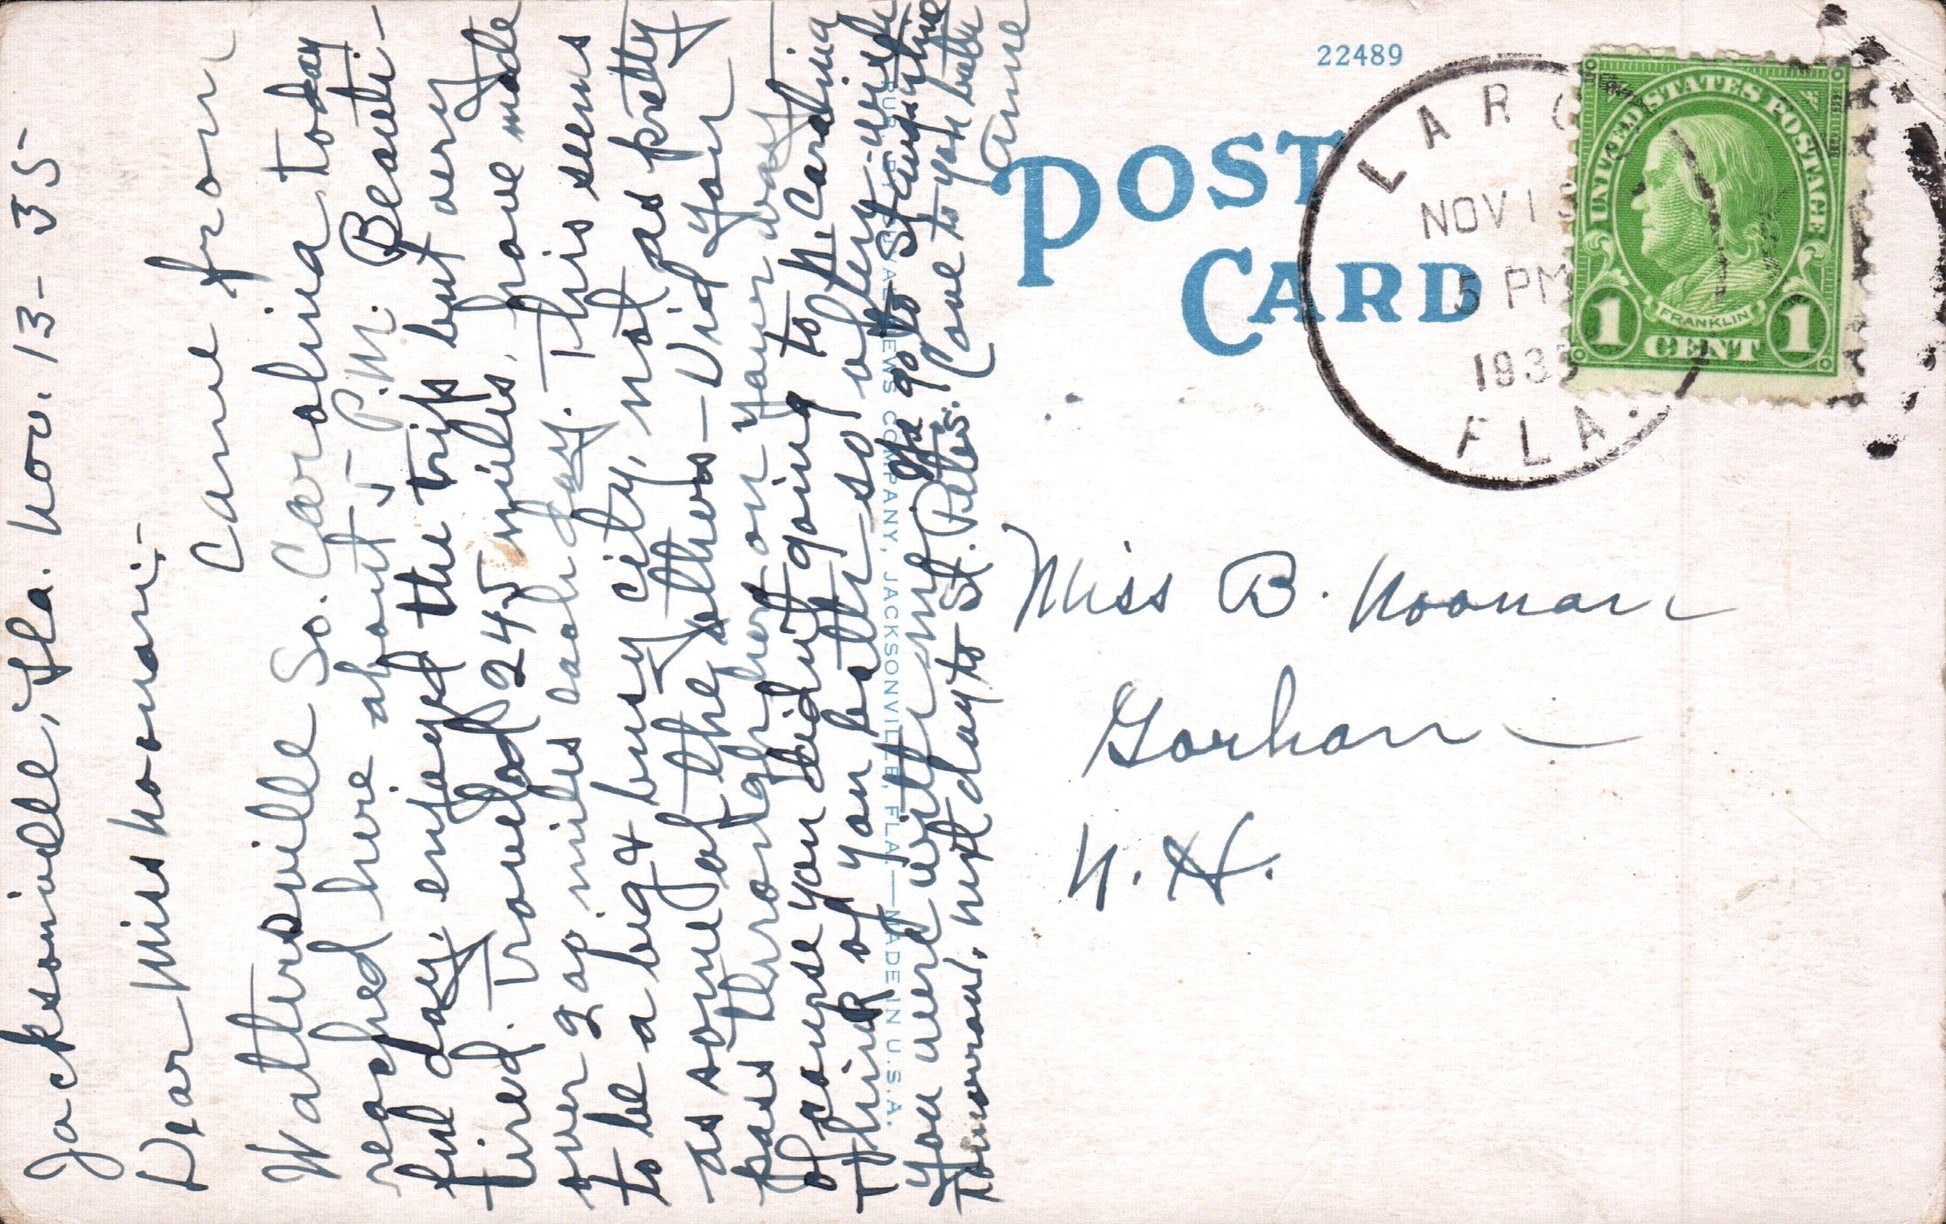 Jacksonville, Fla. Nov. 13-35
Dear Miss Noonan:-
Came from
Waltersville So. Carolina today
reached here about 5 P.M. Beauti-
ful day, enjoyed the trip but very
tired. Traveled 245 miles, have made
over 200 miles each day. This seems
to be a big & busy city, not as pretty
as some of the others - Did you
pass through her on your way
of course you didn't going to N. Carolina
Think of you both so often - wish
you were with me We go to St. Augustine
tomorrow, next day to St. Petes. Love to you both
Anne
PUB. BY NEWS COMPANY, JACKSONVILLE, FLA. — MADE IN U.S.A.
22489
POST
CARD
LARGO
NOV 1
5 PM
1935
FLA.
UNITED STATES POSTAGE
FRANKLIN
1 CENT 1
Miss B. Noonan
Gorham
N. H.